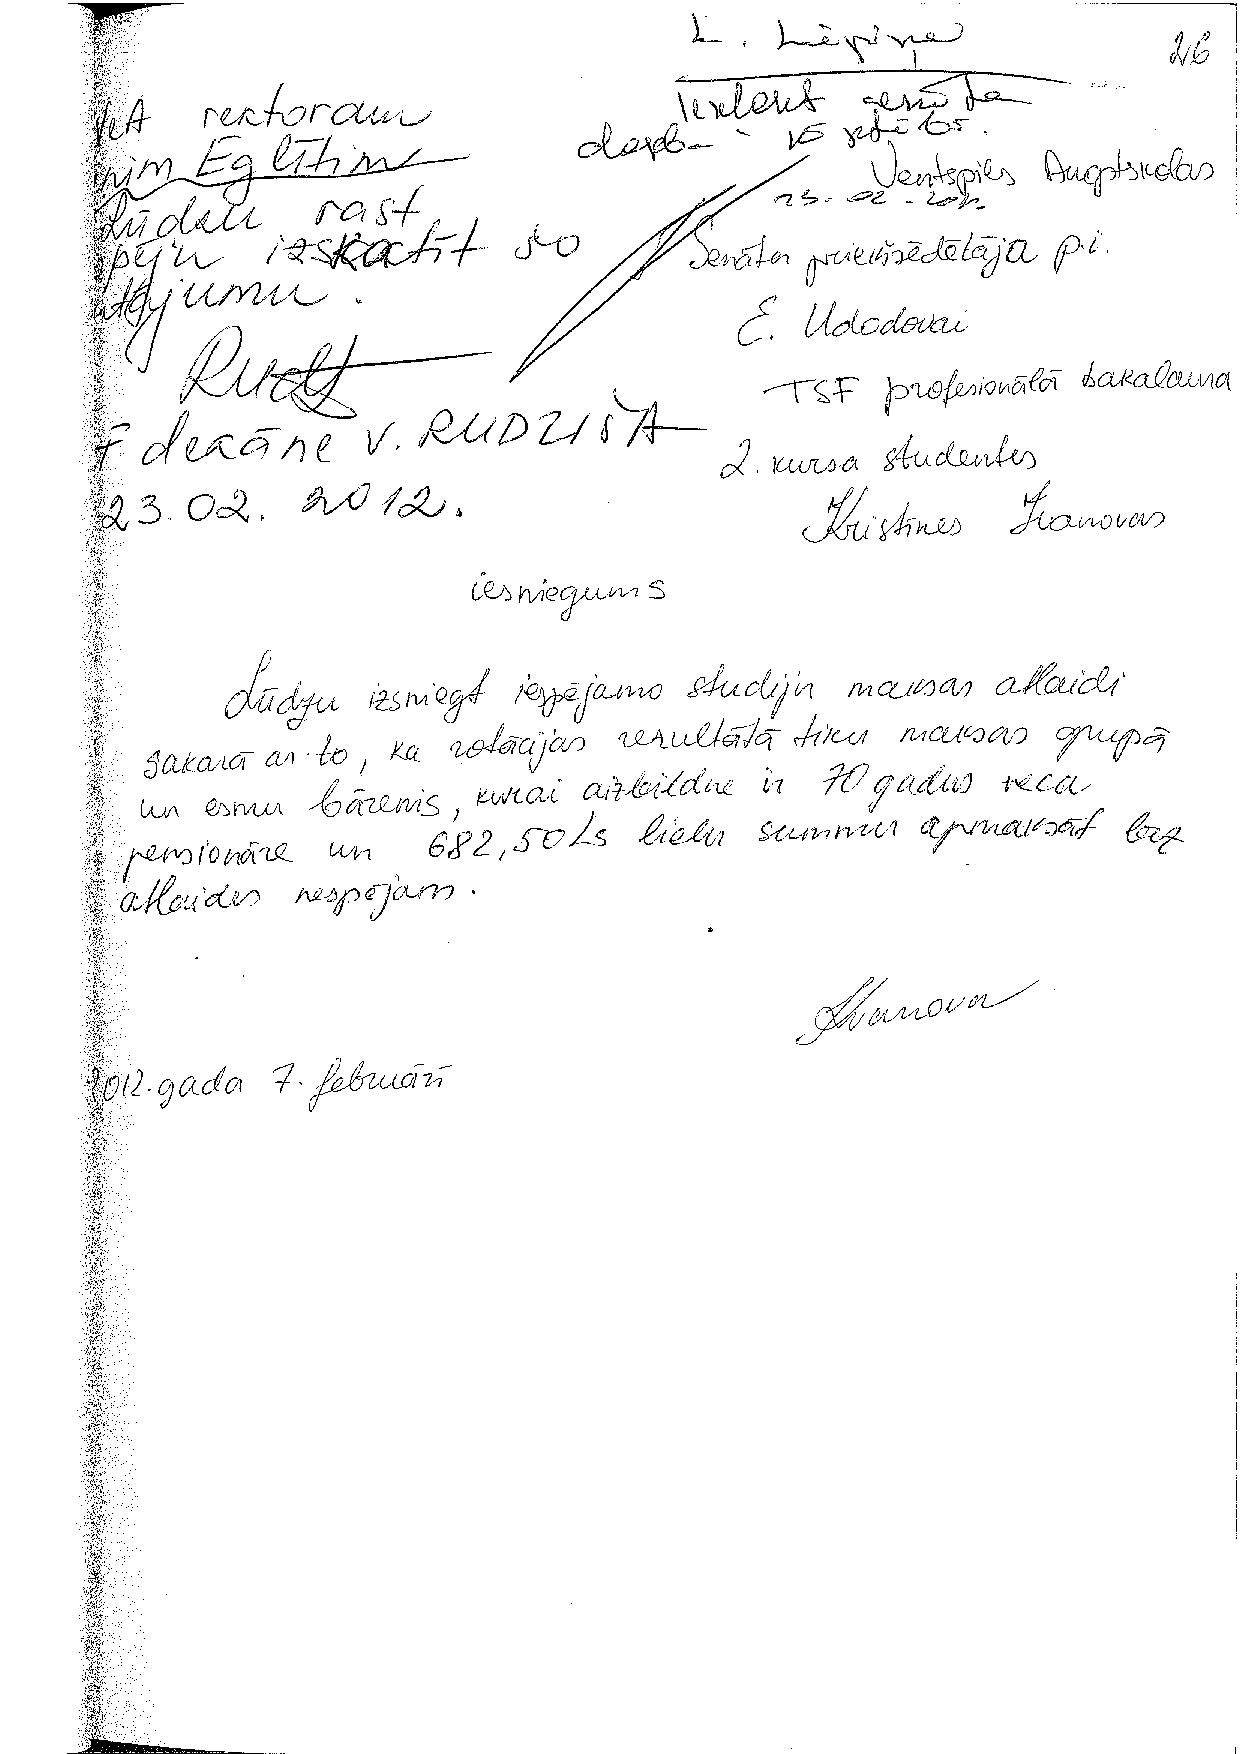 26
L. Liepiņa
Iekļaut senāta
darba kārtībā.
23.02.2012.
rektoram
Eglītim
Lūdzu rast
izskatīt šo
V. RUDZIŠA
dekāne
23.02.2012.
Ventspils Augstskolas
Senāta priekšsēdētāja p.i.
E. Udodovai
TSF profesionālā bakalaura
2. kursa studentes
Kristīnes Ivanovas
iesniegums
Lūdzu izsniegt iespējamo studiju maksas atlaidi
sakarā ar to, ka rotācijas rezultātā tiku maksas grupā
un esmu bārenis, kurai aizbildne ir 70 gadus veca
pensionāre un 682,50 Ls lielu summu apmaksāt bez
atlaides nespējam.
Ivanova
2012. gada 7. februārī